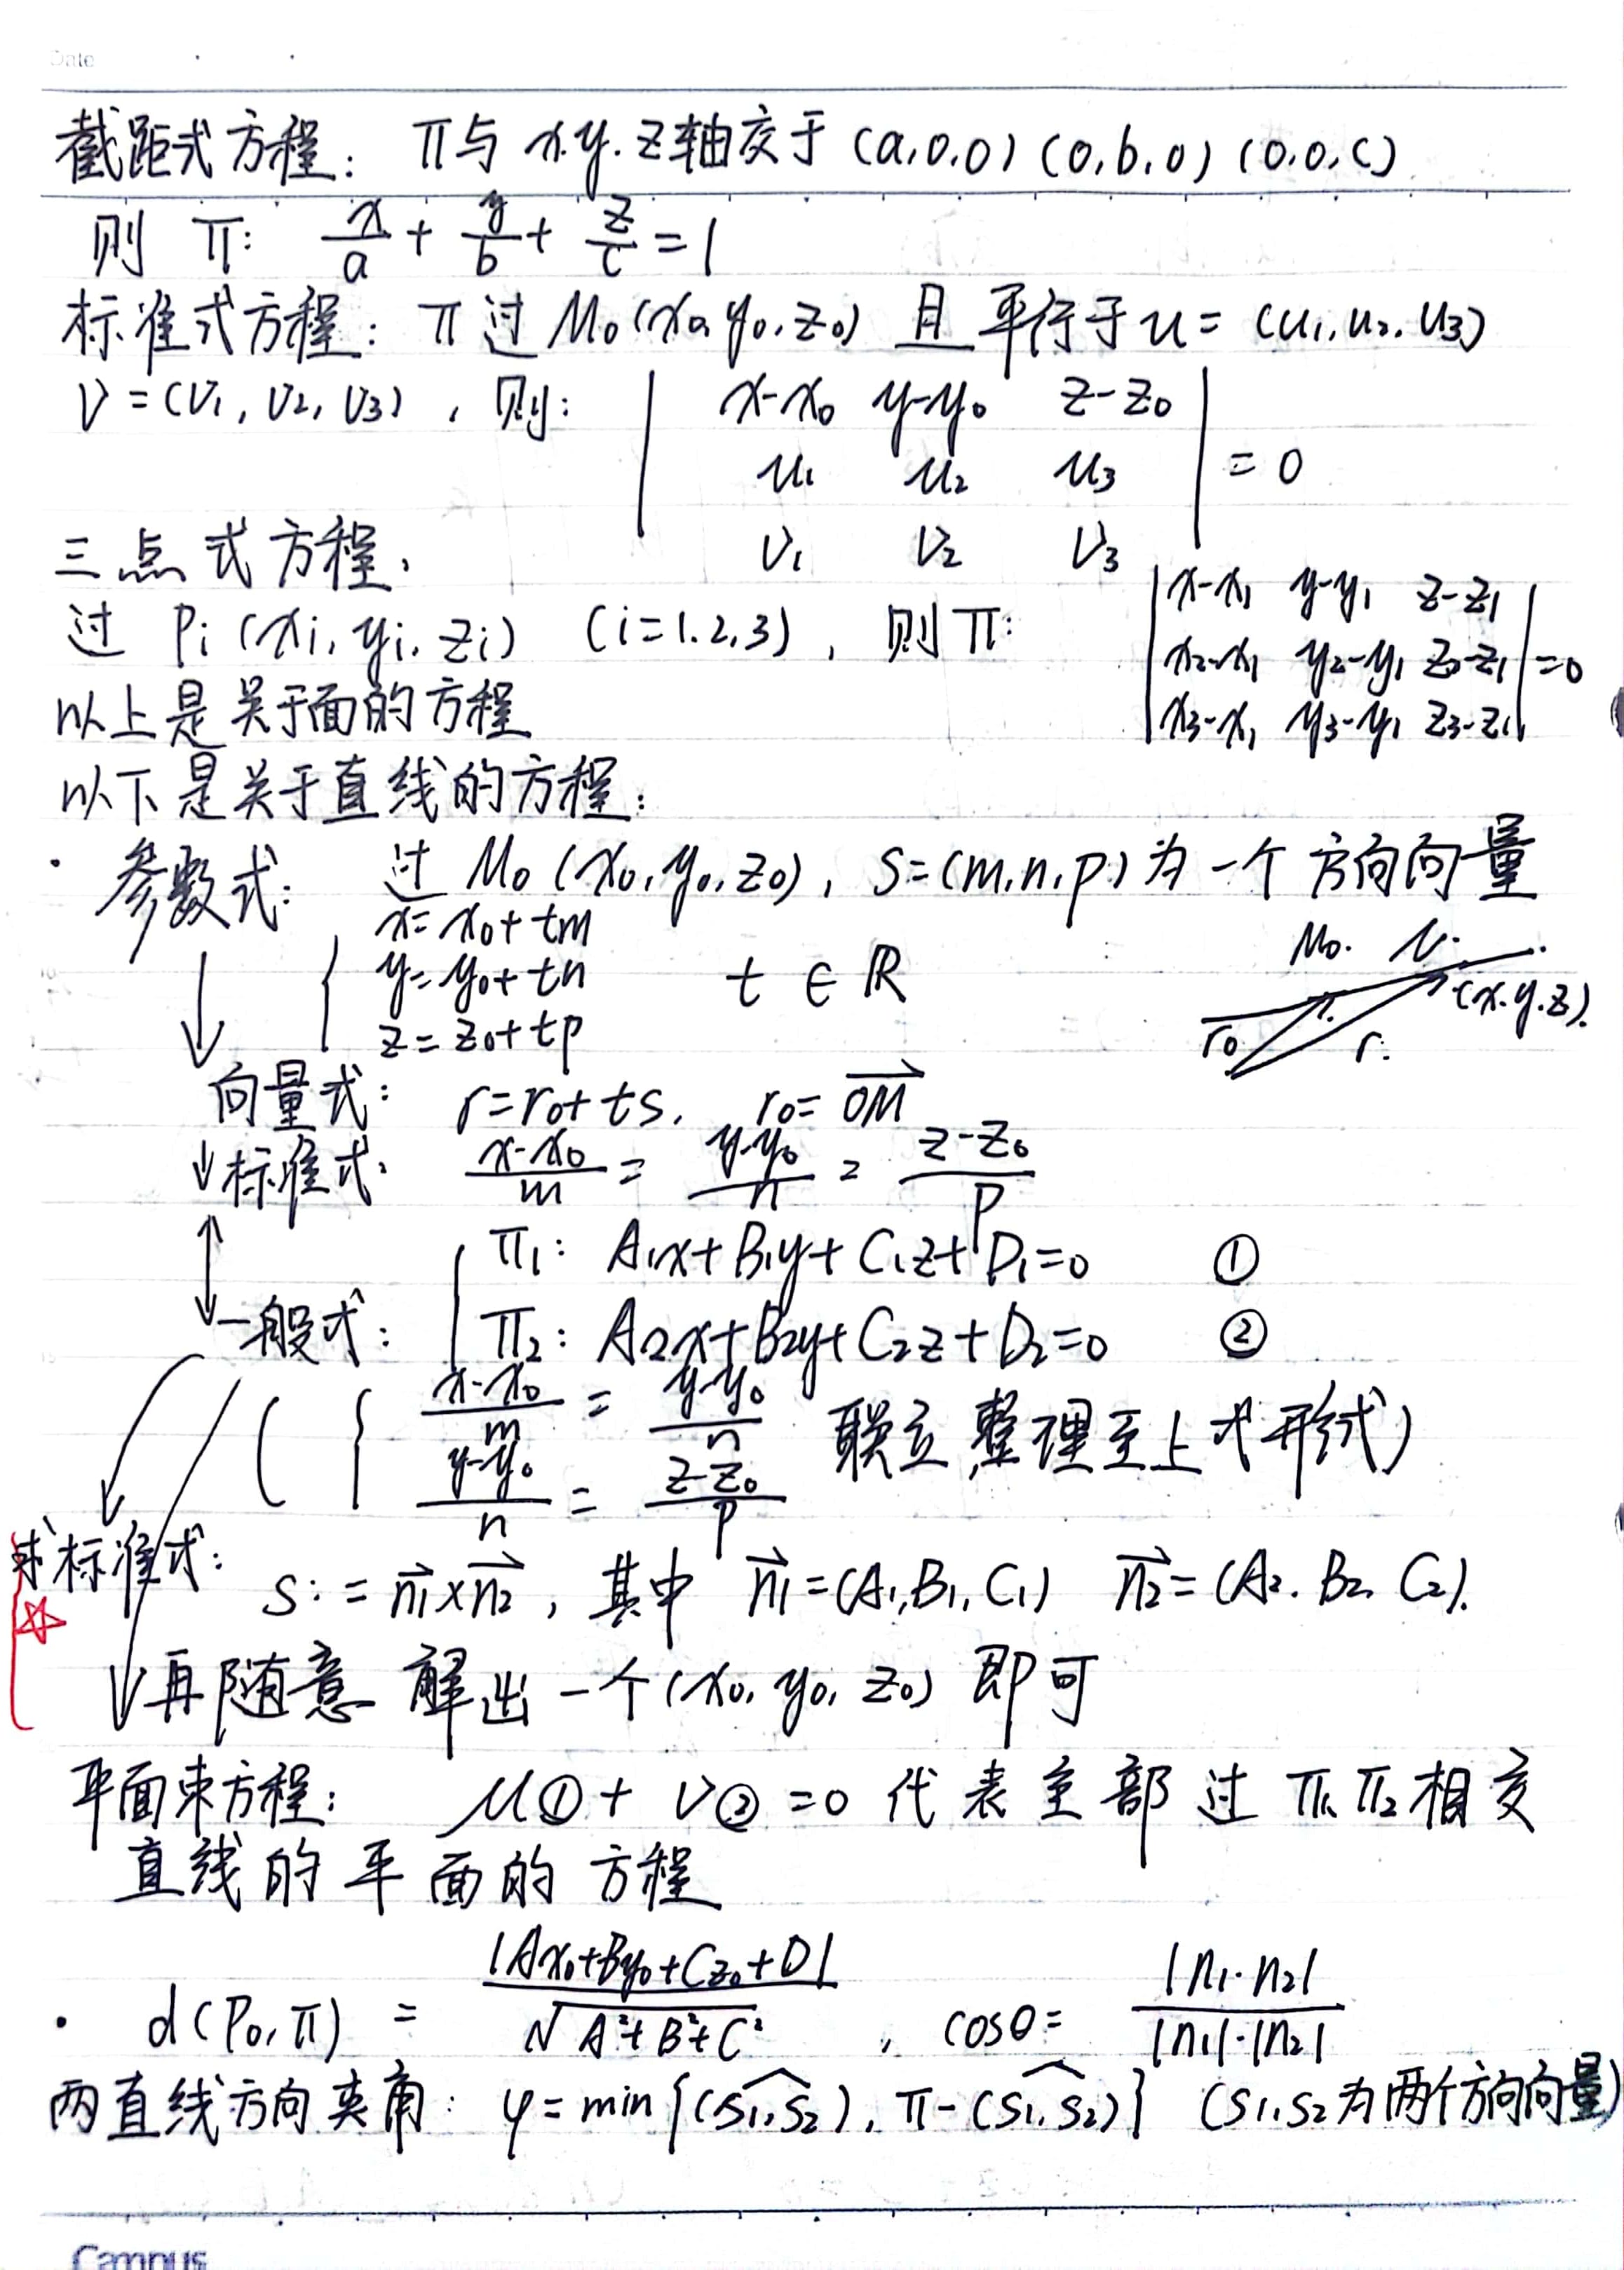 Date
截距式方程： π与 x.y.z轴交于 (a,0,0) (0,b,0) (0,0,c)
则 π: x/a + y/b + z/c = 1
标准式方程：π过 M₀(x₀,y₀,z₀) 且平行于 u = (u₁,u₂,u₃)
v = (v₁, v₂, v₃) ，则：
| x-x₀ y-y₀ z-z₀ |
| u₁ u₂ u₃ | = 0
| v₁ v₂ v₃ |
三点式方程.
过 Pi (xi, yi, zi) (i=1.2,3) ，则π:
| x-x₁ y-y₁ z-z₁ |
| x₂-x₁ y₂-y₁ z₂-z₁ | = 0
| x₃-x₁ y₃-y₁ z₃-z₁ |
以上是关于面的方程
以下是关于直线的方程：
· 参数式： 过 M₀ (x₀,y₀,z₀)，S=(m,n,p) 为一个方向向量
{ x = x₀ + tm
y = y₀ + tn t ∈ ℝ
z = z₀ + tp
M₀.
(x.y.z).
r₀ r.
↓ 向量式： r = r₀ + ts. r₀ = OM→
↓ 标准式. (x-x₀)/m = (y-y₀)/n = (z-z₀)/p
↕ 一般式： { π₁: A₁x + B₁y + C₁z + D₁ = 0 ①
π₂: A₂x + B₂y + C₂z + D₂ = 0 ②
( { (x-x₀)/m = (y-y₀)/n 联立,整理至上式形式)
(y-y₀)/n = (z-z₀)/p
求标准式： S: = n₁→ × n₂→ ，其中 n₁→ = (A₁,B₁,C₁) n₂→ = (A₂. B₂. C₂).
☆
再随意 解出一个 (x₀, y₀, z₀) 即可
平面束方程： μ① + ν② = 0 代表全部过 π₁π₂相交
直线的平面的方程
· d(P₀,π) = |Ax₀+By₀+Cz₀+D| / √(A²+B²+C²) ， cosθ = |n₁·n₂| / |n₁|·|n₂|
两直线方向夹角： φ = min {(s₁,s₂)^, π - (s₁,s₂)^} (S₁,S₂为两个方向向量)
Campus